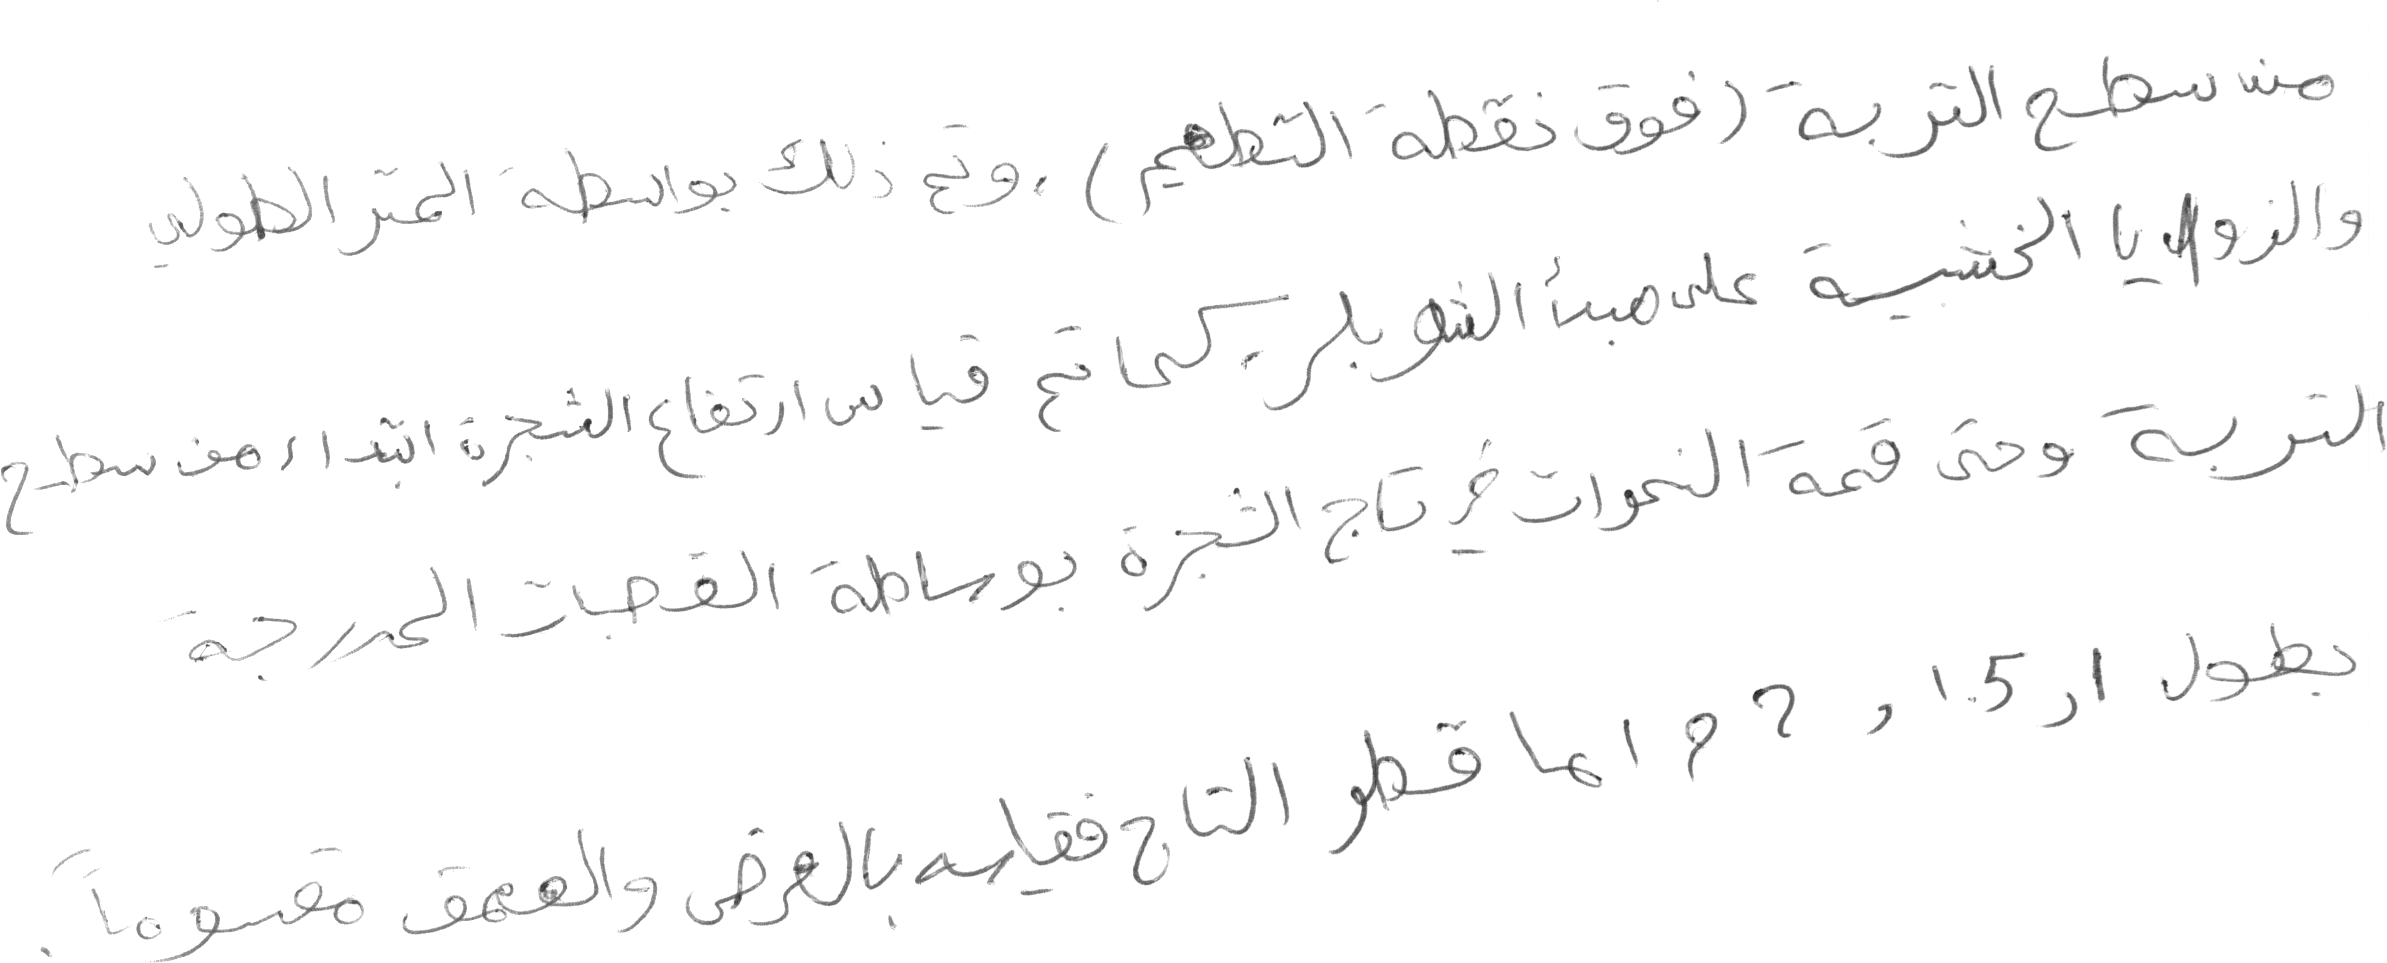 من سطح التربة (فوق نقطة التطعيم)، وتم ذلك بواسطة المتر الطولي
والزوايا الخشبية على مبدأ الشوبلر. كما تم قياس ارتفاع الشجرة ابتداء من سطح
التربة وحتى قمة النموات في تاج الشجرة بوساطة القصبات المدرجة
بطول 1ر 1.5ر 2 م اما قطر التاج فقياسه بالعرض والعمق مقسوماً.